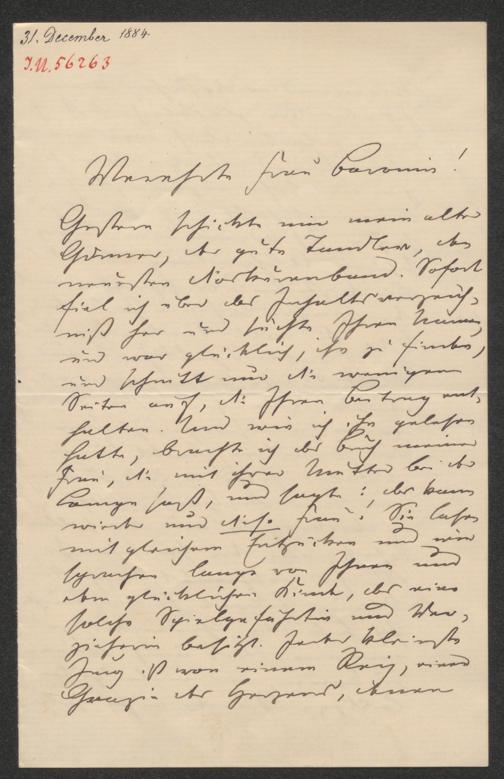 31. December 1884.
I.N. 56263
Verehrte Frau Baronin!
Gestern schickte mir mein alter
Gönner, der gute Landler, den
neuesten Band. Sofort
fiel ich über das Inhaltsverzeich-
niß her und suchte Ihren Namen,
und war glücklich, ihn zu finden,
und schnitt nur die wenigen
Seiten auf, die Ihren Beitrag ent-
halten. Und wie ich ihn gelesen
hatte, brachte ich das Buch meiner
Frau, die mit ihrer Mutter bei der
Lampe saß, und sagte: das kann
wieder nur diese Frau! Sie lasen
mit gleichem Entzücken und wir
sprachen lange von Ihnen und
dem glücklichen Kinde, das eine
solche Spielgefährtin und Er-
zieherin besitzt. Jeder kleinste
Zug ist von einem Reiz, einer
Grazie des Herzens, denen